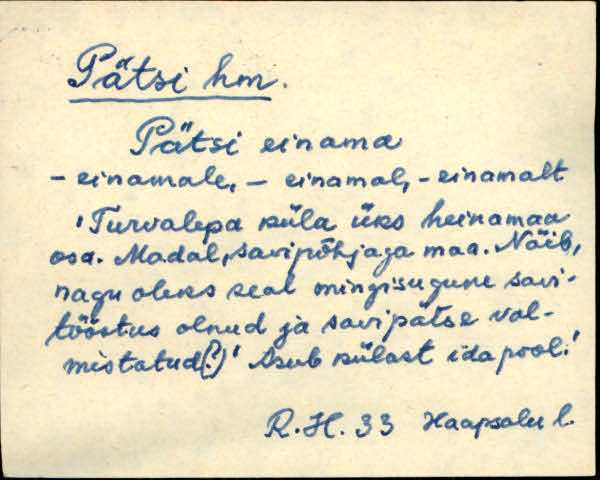 Pätsi hm.
Pätsi einama
- einamale, - einamal, - einamalt
'Turvalepa küla üks heinamaa
osa. Madal, savipõhjaga maa. Näib,
nagu oleks seal mingisugune savi-
tööstus olnud ja savipätse val-
mistatud(?)' Asub külast ida pool.'
R.H. 33 Haapsalu l.